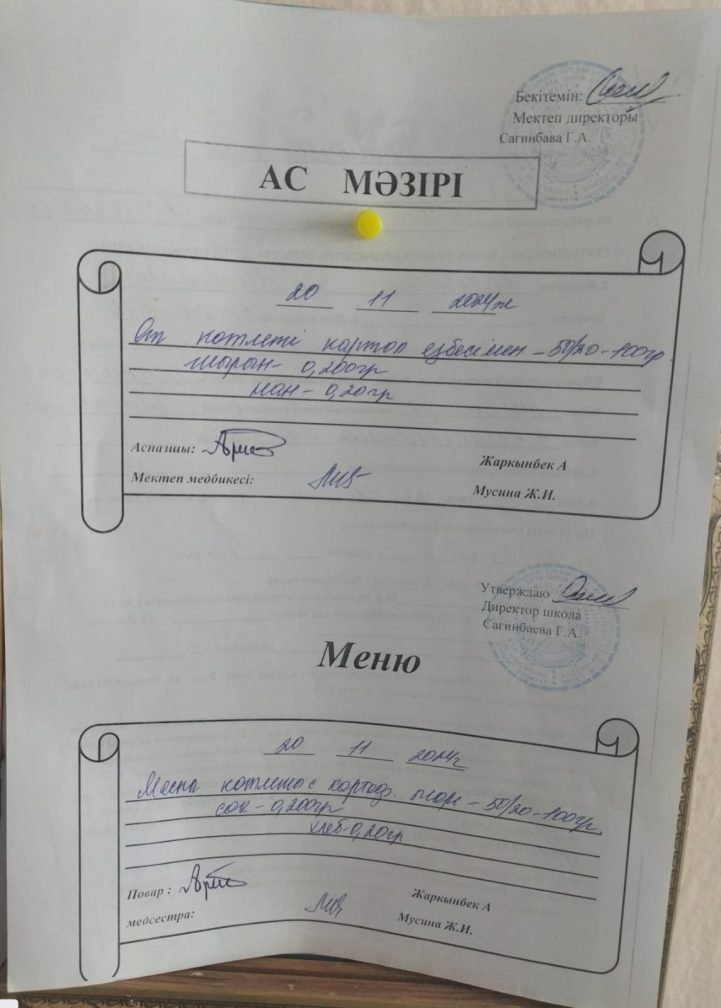 Бекітемін:
Мектеп директоры
Сагинбава Г.А.
АС МӘЗІРІ
20 11 2024ж
Ет котлеті картоп езбесімен - 50/20-100гр
шырын- 0,200гр
нан - 0,20гр
Аспазшы:
Жаркынбек А
Мектеп медбикесі:
Мусина Ж.И.
Утверждаю
Директор школа
Сагинбаева Г.А.
Меню
20 11 2024г
котлета с картоф. пюре - 50/20-100гр
сок - 0,200гр
хлеб-0,20гр
Повар :
Жаркынбек А
медсестра:
Мусина Ж.И.